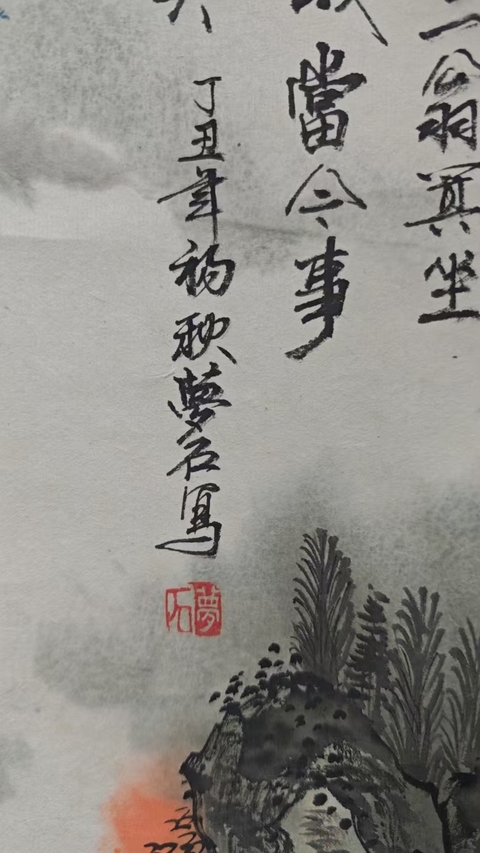 翁箕坐
當今事
丁丑年初秋夢石寫
夢石